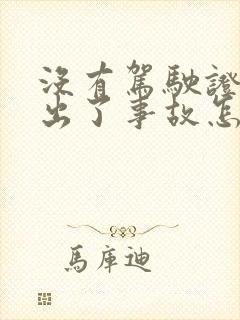 没有駕駛證
出了事故怎
馬庫迪